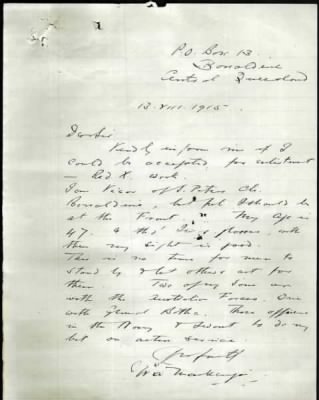 P.O. Box 13
Barcaldine
Central Queensland
13. VIII. 1915.
Dear Sir
Kindly inform me if I
could be accepted for enlistment
— Red X. Work.
I am Vicar of St. Peters Ch.
Barcaldine, but feel I should be
at the Front. My age is
47. & tho' I use glasses, with
them my sight is good.
This is no time for men to
stand by & let others act for
them. Two of my sons are
with the Australian Forces. One
with General Botha. Three
in the Navy & I want to do my
bit on active service.
Yrs faithf
Wm